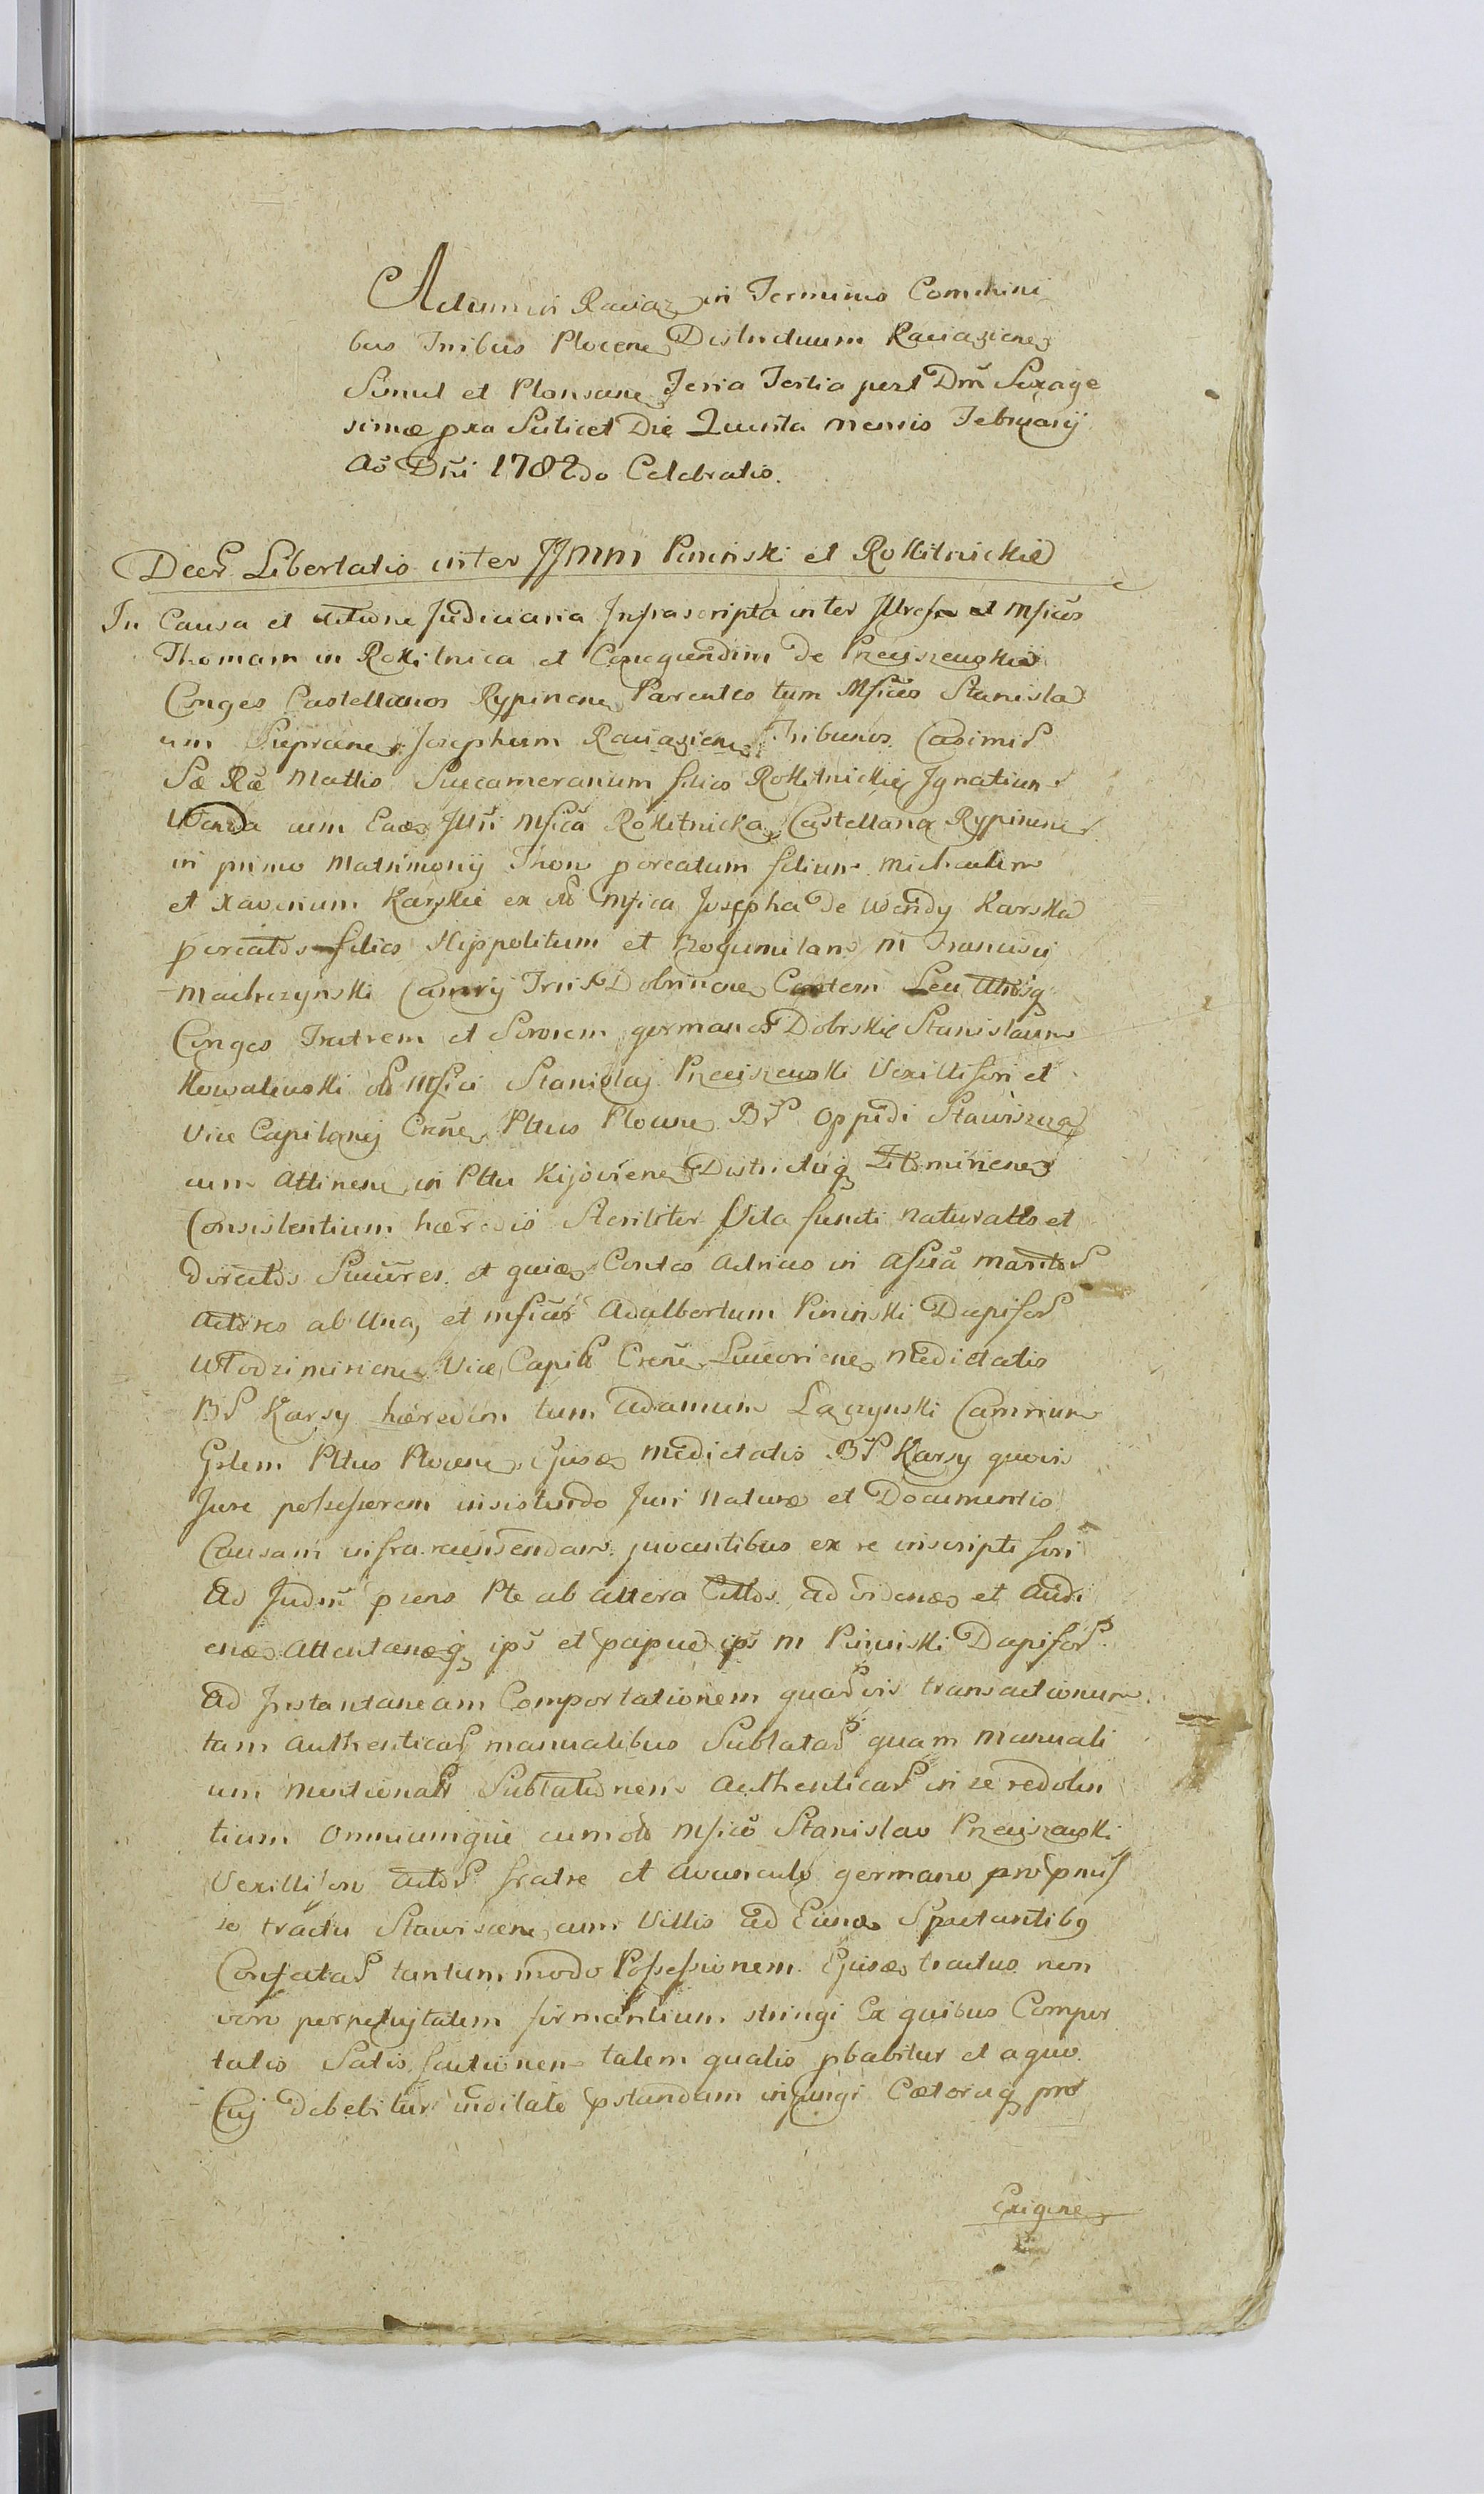 Actum in Raciąz in Terminis Commini
bus Tribus Plocen Districtuum Raciązienes
Simul et Plonscen Feria Tertia post Dm̃ Sexage
simæ pxa Scilicet Die Quinta mensis February
Aõ Dn̄i 1782do Celebratis.
Decr Libertatis inter JJMM Pininski et Rokitnickie
In Causa et actione Judiciaria Infrascripta inter Illres et Mficos
Thomam in Rokitnica et Conegundim de Przeciszewskie
Cnges Castellanos Rypinen Parentes tum Mficos Stanisla
um Sieprcen Josephum Raciązien Tribunos Casimir
Sæ Ræ Mattis Succamerarium filios Rokitnickie Ignatium
Wenda cum Eadem Illri Mfica Rokitnicka Castellana Rypinen
in primo Matrimonij Thoro pcreatum filium Michaelem
et Xaverium Karskie ex olb Mfica Josepha de Wendy Karska
pcreatos filios Hyppolitum et Bogumilam M Francisci
Machczynski Camrij Tris Dobrinen Contem Seu
Cnges Fratrem et Sororem germanos Dobrskie Stanislaum
Kowalewski olb Mfici Stanislaj Przeciszewski Vexilliferi et
Vice Capitanej Cren Pttus Plocen BP oppidi Stawiszcza
cum Attinen in Pttu Kijovien Districtuq Zitomirien
Consistentium hæredis Steriliter Vita functi naturales et
directos Succres et quidem Contes Actricis in Assia maritor
Actores ab Una, et Mficos Adalbertum Pininski Dapifer
Wlodzimirien Vice Capit Cren Luceorien medietatis
BP Karsy hæredem tum Adamum Łączynski Camrium
Grlem Pttus Plocen Ejusdem medietatis BP Karsy quovis
Jure possessorem insistendo Juri naturæ et Documentis
Causam infra recensendam juvantibus ex re inscripti fori
Ad Judm̃ prens Pte ab altera Cittos ad videndem et Audi
endem Attentandemq ips et papue ips M Pininski Dapifer
Ad Instantaneam Comportationem quarvis transactionum
tam Authenticar manualibus Sublatar quam Manuali
um mentionatr Sublationem Authenticar in se redolen
tium Omniumque cum olb Mfico Stanislao Przeciszewski
Vexillifero Actor fratre et Avunculo germano pro pmis
so tractu Stawiscen cum Villis ad Eundem Spectantibq
Confectar tantum modo Possessionem Ejusdem tractus non
vero perpetujtatem firmantium stringi Ex quibus Compor
tatis Satisfactionem talem qualis pbabitur et a quo
Cuj debebitur inditate pstandam injungi Cæteraq pro
Exigen